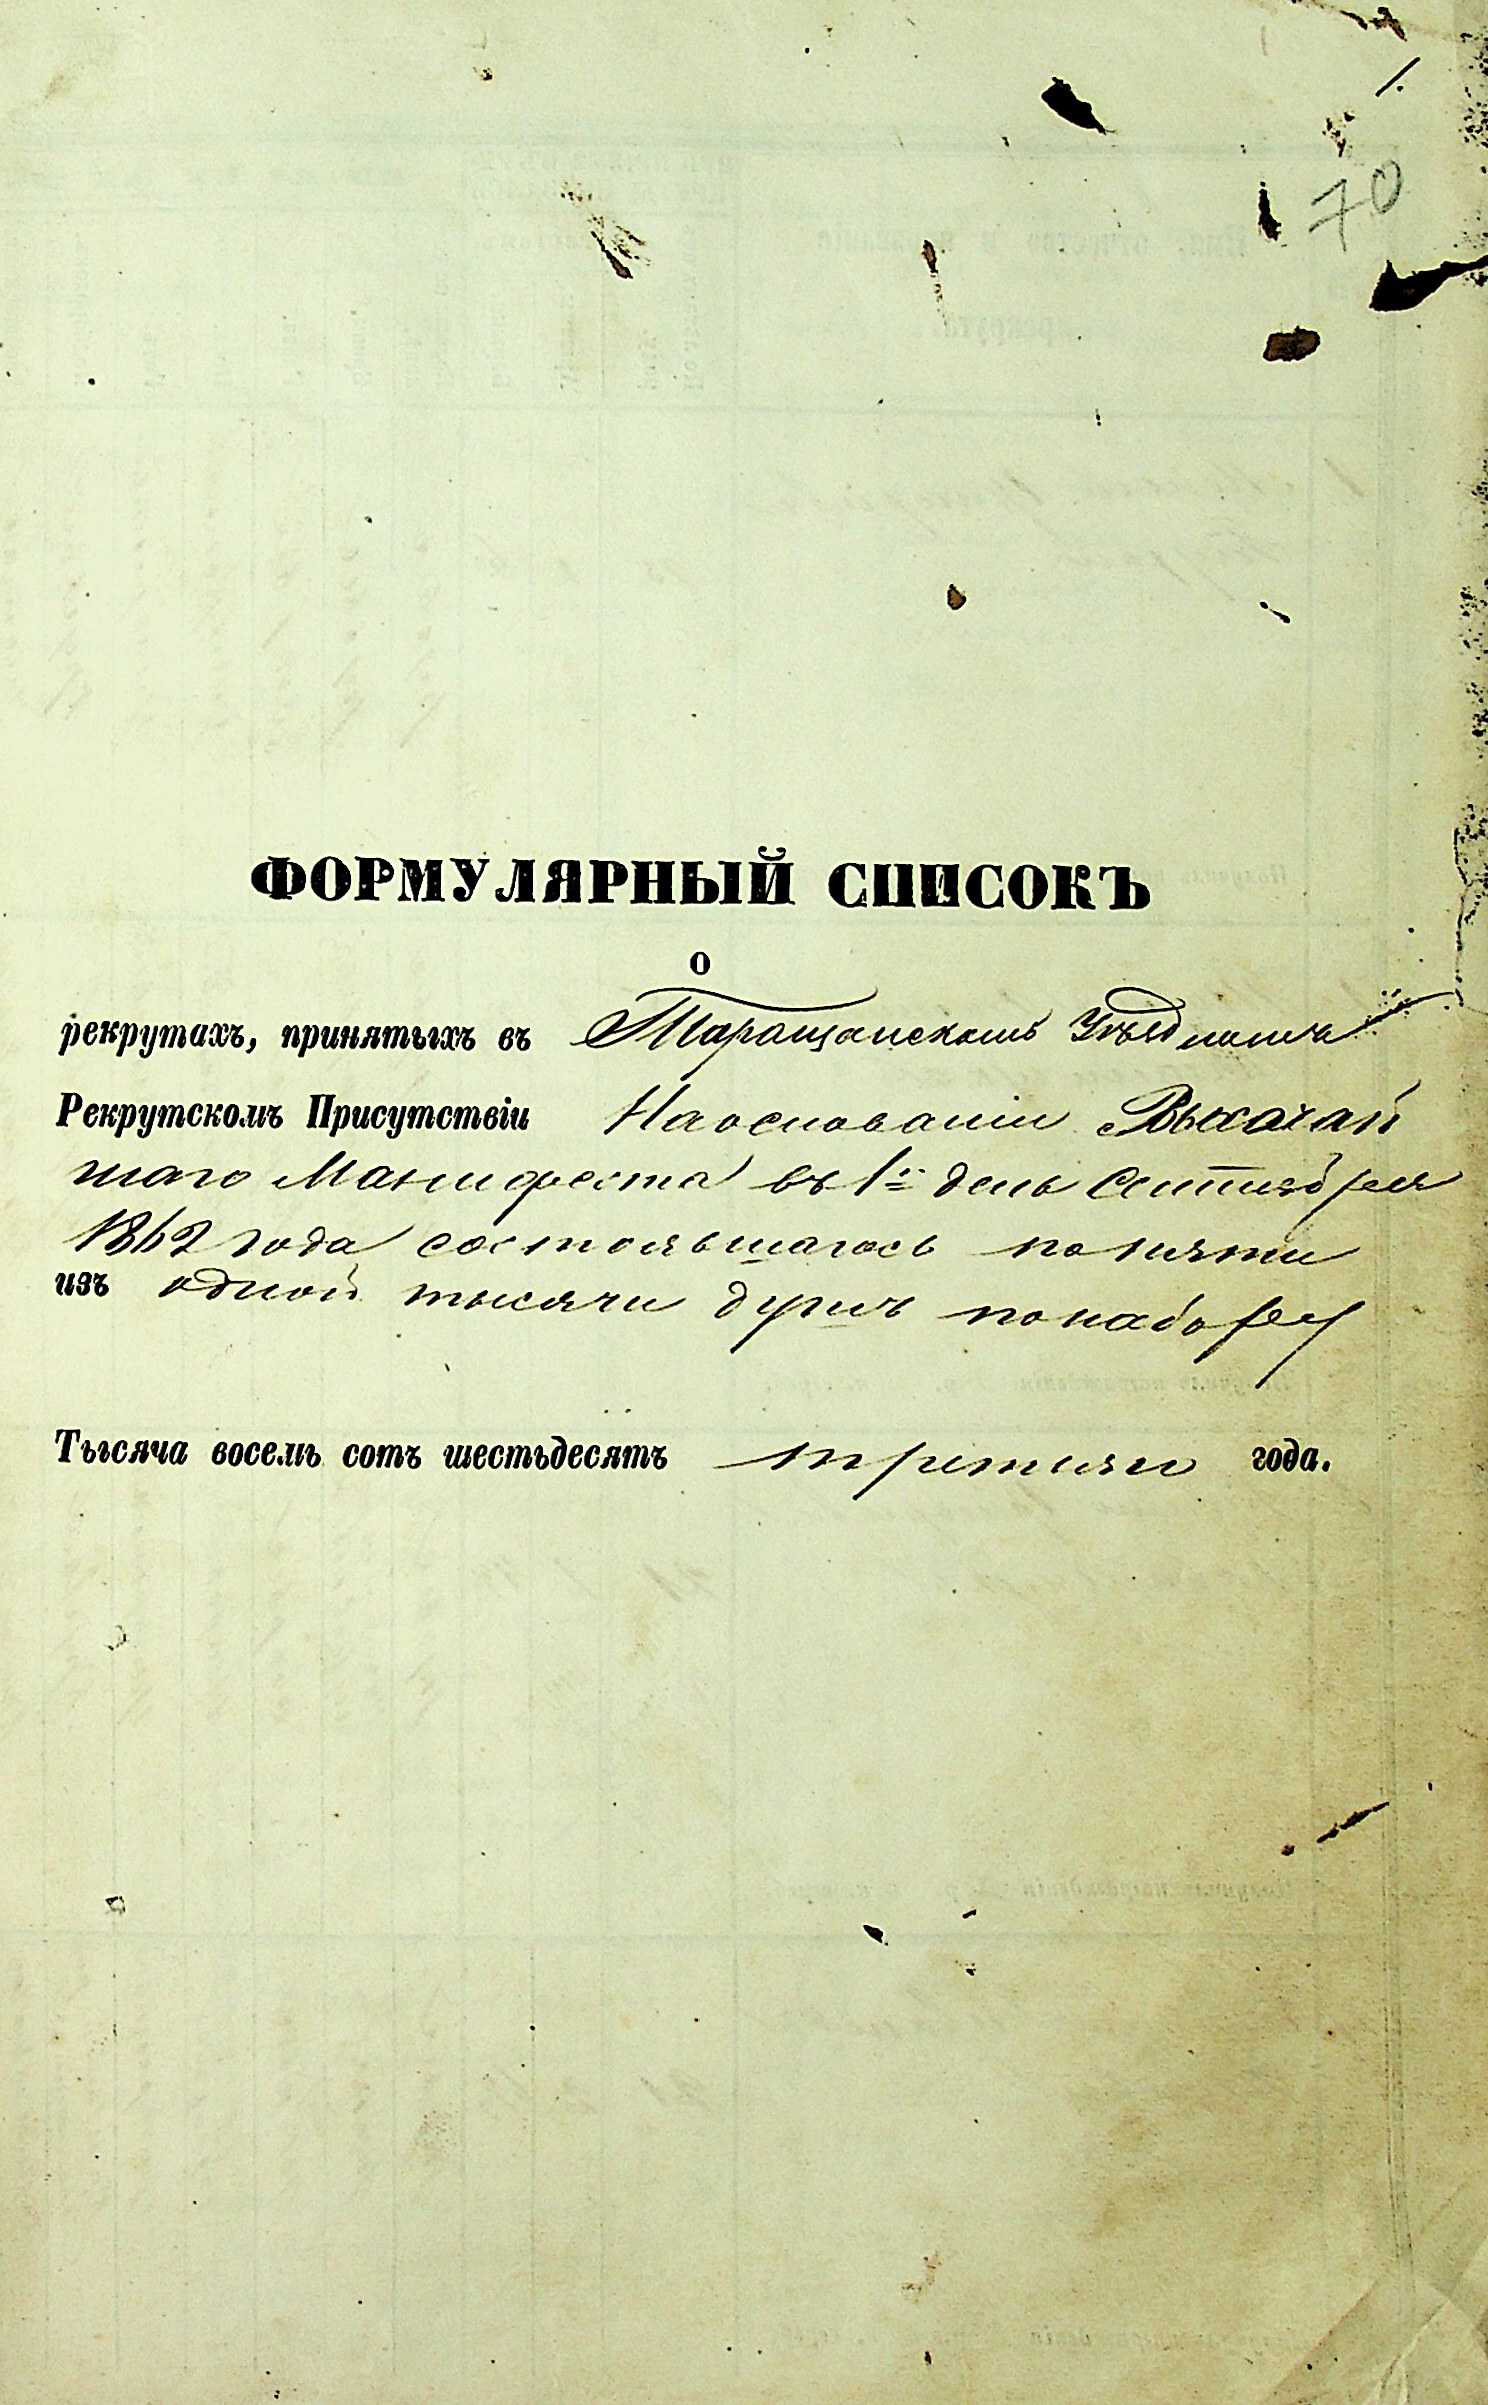 1.
70
ФОРМУЛЯРНЫЙ СПИСОКЪ
о
рекрутахъ, принятыхъ въ Таращанскомъ Уѣздномъ
Рекрутскомъ Присутствіи На основаніи Высочай
шаго Манифеста въ 1й день сентября
1862 года состоявшагось по пяти
изъ одной тысячи душъ по набору
Тысяча восемь сотъ шестьдесятъ третьяго года.